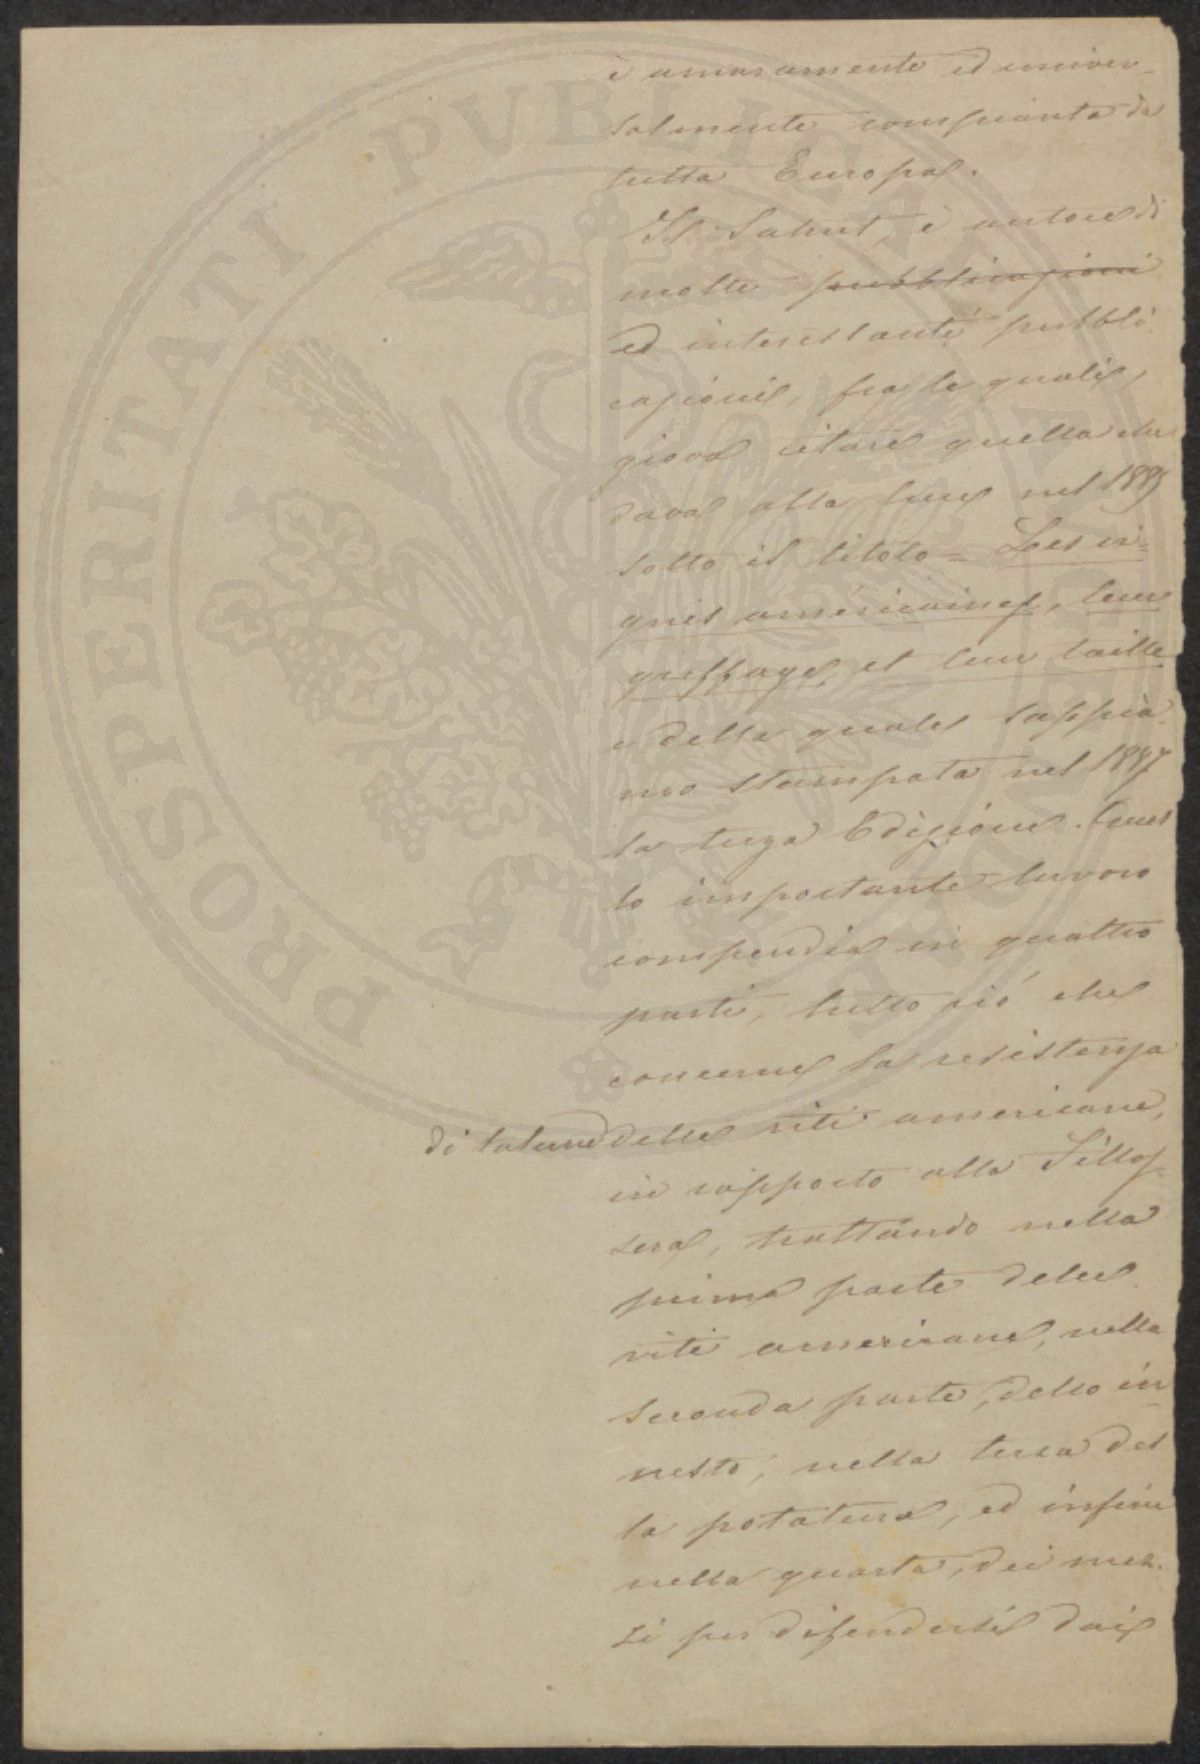 è amaramente ed univer-
salmente compianta da
tutta Europa.
Il Sahut, è autore di
molte pubblicazioni
ed interessanti pubbli
cazioni, fra le quali,
giova citare quella che
dava alla luce nel 1885
sotto il titolo = Les vi=
gnes américaines, leur
greffage et leur taille
e della quale sappia
mo stampata nel 1887
la terza Edizione. Ques
to importante lavoro
compendia in quattro
parti, tutto ciò che
concerne la resistenza
di talune delle viti americane,
in rapporto alla Fillos-
sera, trattando nella
prima parte delle
viti americane, nella
seconda parte, dello in
nesto, nella terza del
la potatura, ed infine
nella quarta, dei mez-
zi per difendersi dai
PROSPERITATI PVBLICAE AVGENDAE